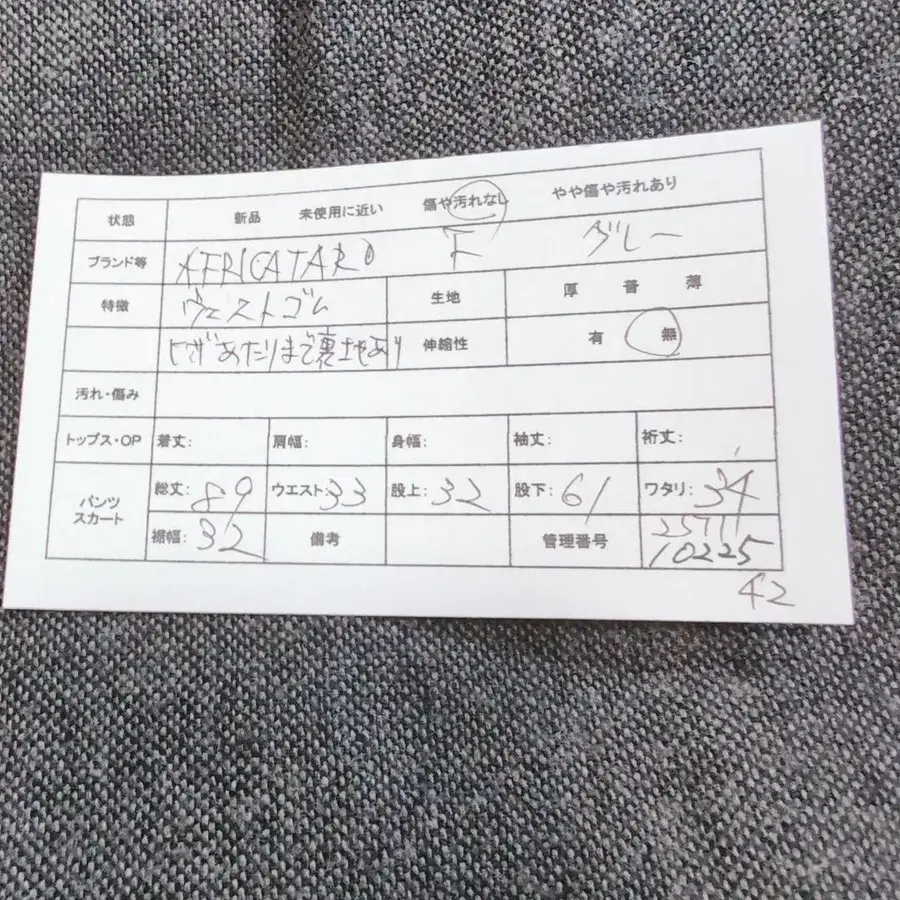 状態 新品 未使用に近い 傷や汚れなし やや傷や汚れあり
ブランド等 AFRICATARO F グレー
特徴 ウェストゴム 生地 厚 普 薄
ひざあたりまで裏地あり 伸縮性 有 無
汚れ・傷み
トップス・OP 着丈: 肩幅: 身幅: 袖丈: 裄丈:
パンツ スカート 総丈: 89 ウエスト: 33 股上: 32 股下: 61 ワタリ: 34
裾幅: 32 備考 管理番号 25711
10225
42